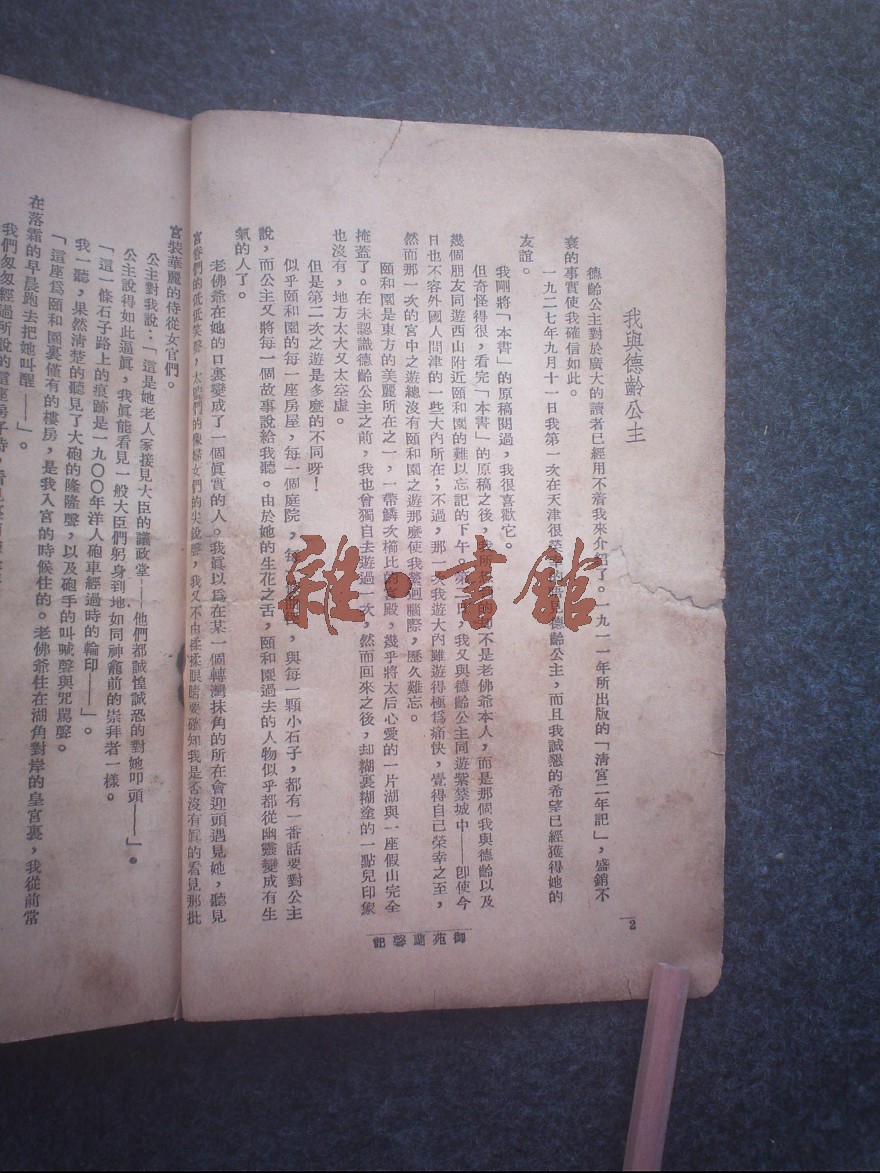 我與德齡公主
德齡公主對於廣大的讀者已經用不着我來介紹了。一九一一年所出版的「清宮二年記」，盛銷不
衰的事實使我確信如此。
一九二七年九月十一日我第一次在天津很榮幸的會見德齡公主，而且我誠懇的希望已經獲得她的
友誼。
我剛將「本書」的原稿閱過，我很喜歡它。
但奇怪得很，看完「本書」的原稿之後，我所 的却不是老佛爺本人，而是那個我與德齡以及
幾個朋友同遊西山附近頤和園的難以忘記的下午。第二 ，我又與德齡公主同遊紫禁城中——卽使今
日也不容外國人問津的一些大內所在；不過，那一次我遊大內雖遊得極爲痛快，覺得自己榮幸之至，
然而那一次的宮中之遊總沒有頤和園之遊那麽使我縈迴腦際，歷久難忘。
頤和園是東方的美麗所在之一，一帶鱗次櫛比的宮殿，幾乎將太后心愛的一片湖與一座假山完全
掩蓋了。在未認識德齡公主之前，我也會獨自去遊過一次，然而回來之後，却糊裏糊塗的一點兒印象
也沒有，地方太大又太空虛。
但是第二次之遊是多麽的不同呀！
似乎頤和園的每一座房屋，每一個庭院，每 ，與每一顆小石子，都有一番話要對公主
說，而公主又將每一個故事說給我聽。由於她的生花之舌，頤和園過去的人物似乎都從幽靈變成有生
氣的人了。
老佛爺在她的口裏變成了一個眞實的人。我眞以爲在某一個轉灣抹角的所在會迎頭遇見她，聽見
宮眷們的低低笑聲，太監們的 女們的尖銳聲，我又不由揉揉眼睛要確知我是否沒有眞的看見那批
宮裝華麗的侍從女官們。
公主對我說：「這是她老人家接見大臣的議政堂——他們都誠惶誠恐的對她叩頭——」。
公主說得如此逼眞，我眞能看見一般大臣們躬身到地如同神龕前的崇拜者一樣。
「這一條石子路上的痕跡是一九〇〇年洋人砲車經過時的輪印——」。
我一聽，果然清楚的聽見了大砲的隆隆聲，以及砲手的叫喊聲與咒罵聲。
「這座爲頤和園裏僅有的樓房，是我入宮的時候住的。老佛爺住在湖角對岸的皇宮裏，我從前常
在落霜的早晨跑去把她叫醒——」。
我們匆匆經過所說的這座房子時，
2
御苑蘭馨記
雜·書館